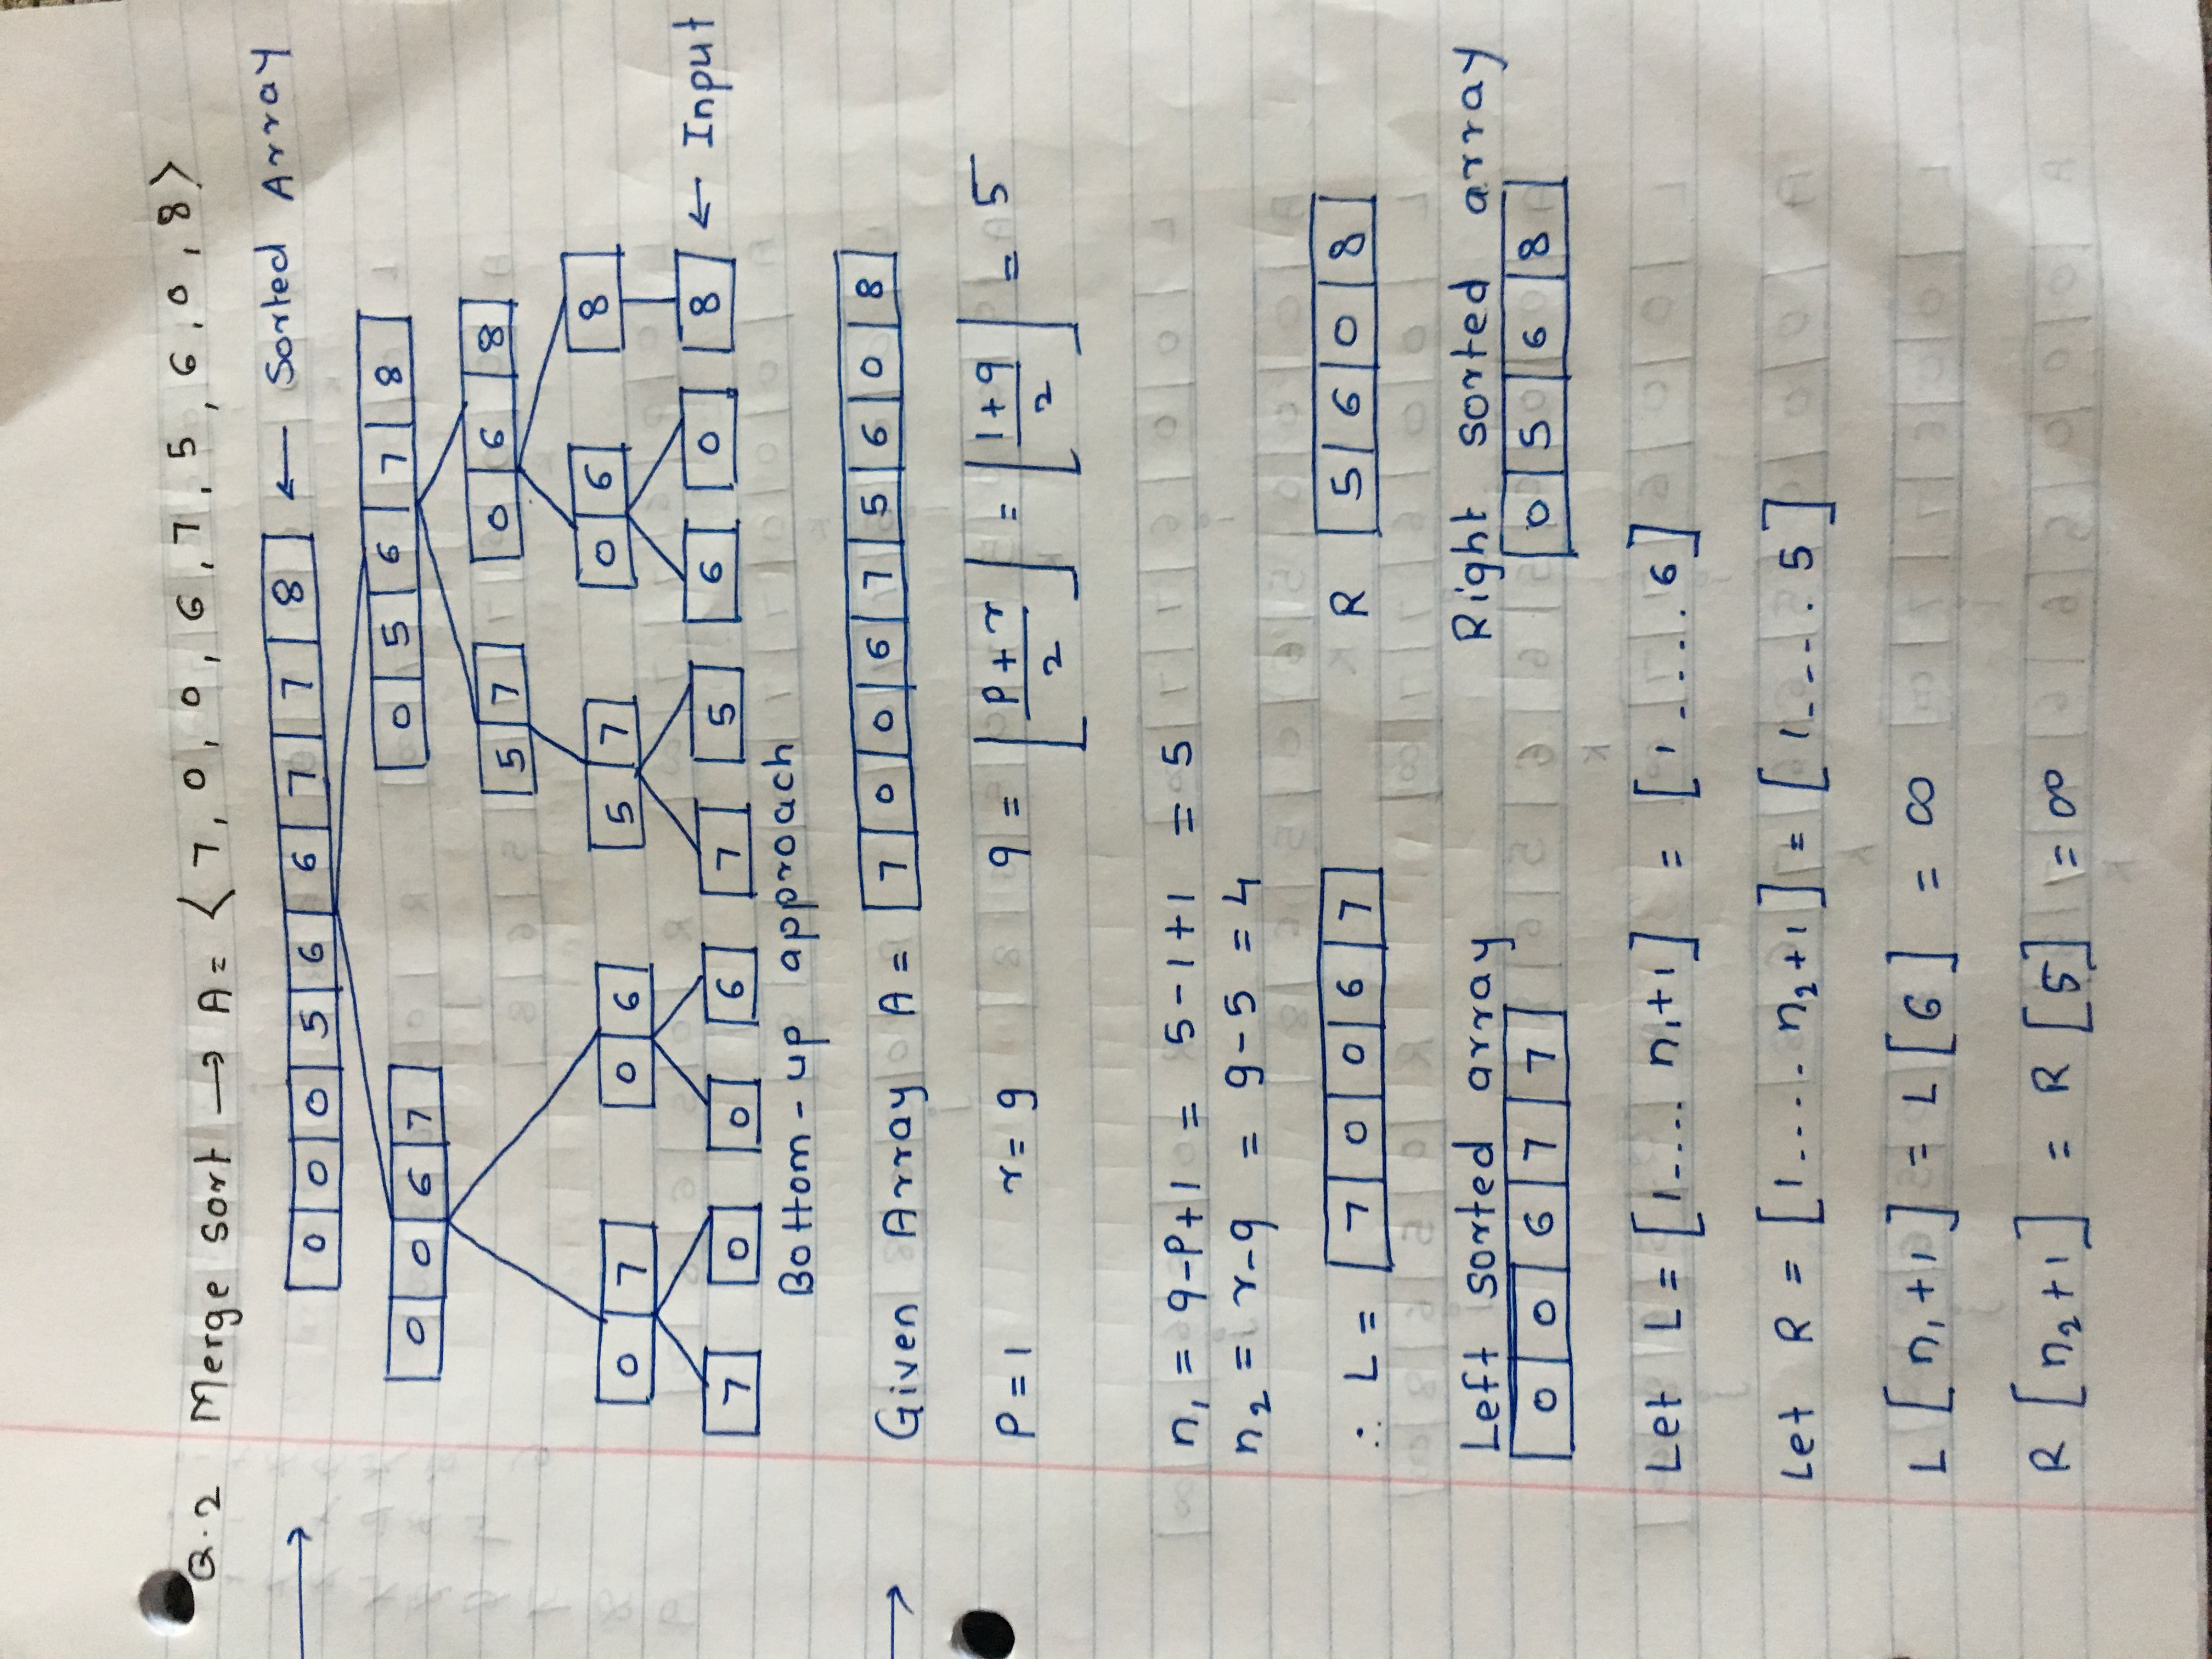 Q.2 Merge sort → A = ⟨ 7, 0, 0, 6, 7, 5, 6, 0, 8⟩
→ 0 0 0 5 6 6 7 7 8 ← Sorted Array
0 0 6 7 0 5 6 7 8
5 7 0 6 8
0 7 0 6 5 7 0 6 8
7 0 0 6 7 5 6 0 8 ← Input
Bottom-up approach
→ Given Array A = 7 0 0 6 7 5 6 0 8
P = 1 r = 9 q = ⌊(P+r)/2⌋ = ⌊(1+9)/2⌋ = 5
n₁ = q-P+1 = 5-1+1 = 5
n₂ = r-q = 9-5 = 4
∴ L = 7 0 0 6 7 R 5 6 0 8
Left sorted array Right sorted array
0 0 6 7 7 0 5 6 8
Let L = [1.... n₁+1] = [1.....6]
Let R = [1.... n₂+1] = [1....5]
L [n₁+1] = L [6] = ∞
R [n₂+1] = R [5] = ∞